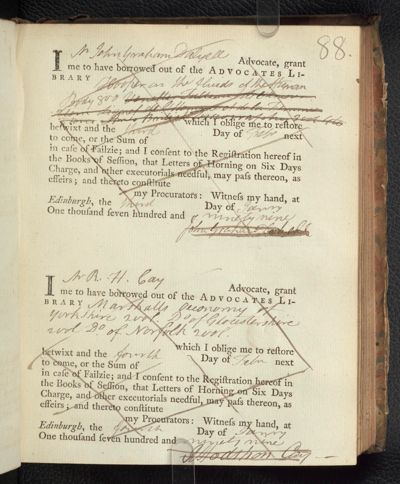 88.
I Mr John Graham Dalyell Advocate, grant
me to have borrowed out of the ADVOCATES LI-
BRARY Cooper on the Muscles of the Human
Body 800
betwixt and the third which I oblige me to restore
Day of Feby next
to come, or the Sum of
in case of Failzie; and I consent to the Registration hereof in
the Books of Session, that Letters of Horning on Six Days
Charge, and other executorials needful, may pass thereon, as
effeirs; and thereto constitute
my Procurators: Witness my hand, at
Edinburgh, the third Day of Janry
One thousand seven hundred and ninety nine
John Graham
I Mr R. H. Cay Advocate, grant
me to have borrowed out of the ADVOCATES LI-
BRARY Marshalls Œconomy of
Yorkshire 2 vol. Do of Glocestershire
2 vol Do of Norfolk 2 vol.
which I oblige me to restore
betwixt and the fourth Day of Feby next
to come, or the Sum of
in case of Failzie; and I consent to the Registration hereof in
the Books of Session, that Letters of Horning on Six Days
Charge, and other executorials needful, may pass thereon, as
effeirs; and thereto constitute
my Procurators: Witness my hand, at
Edinburgh, the fourth Day of Janry
One thousand seven hundred and ninety nine
R Hodshon Cay